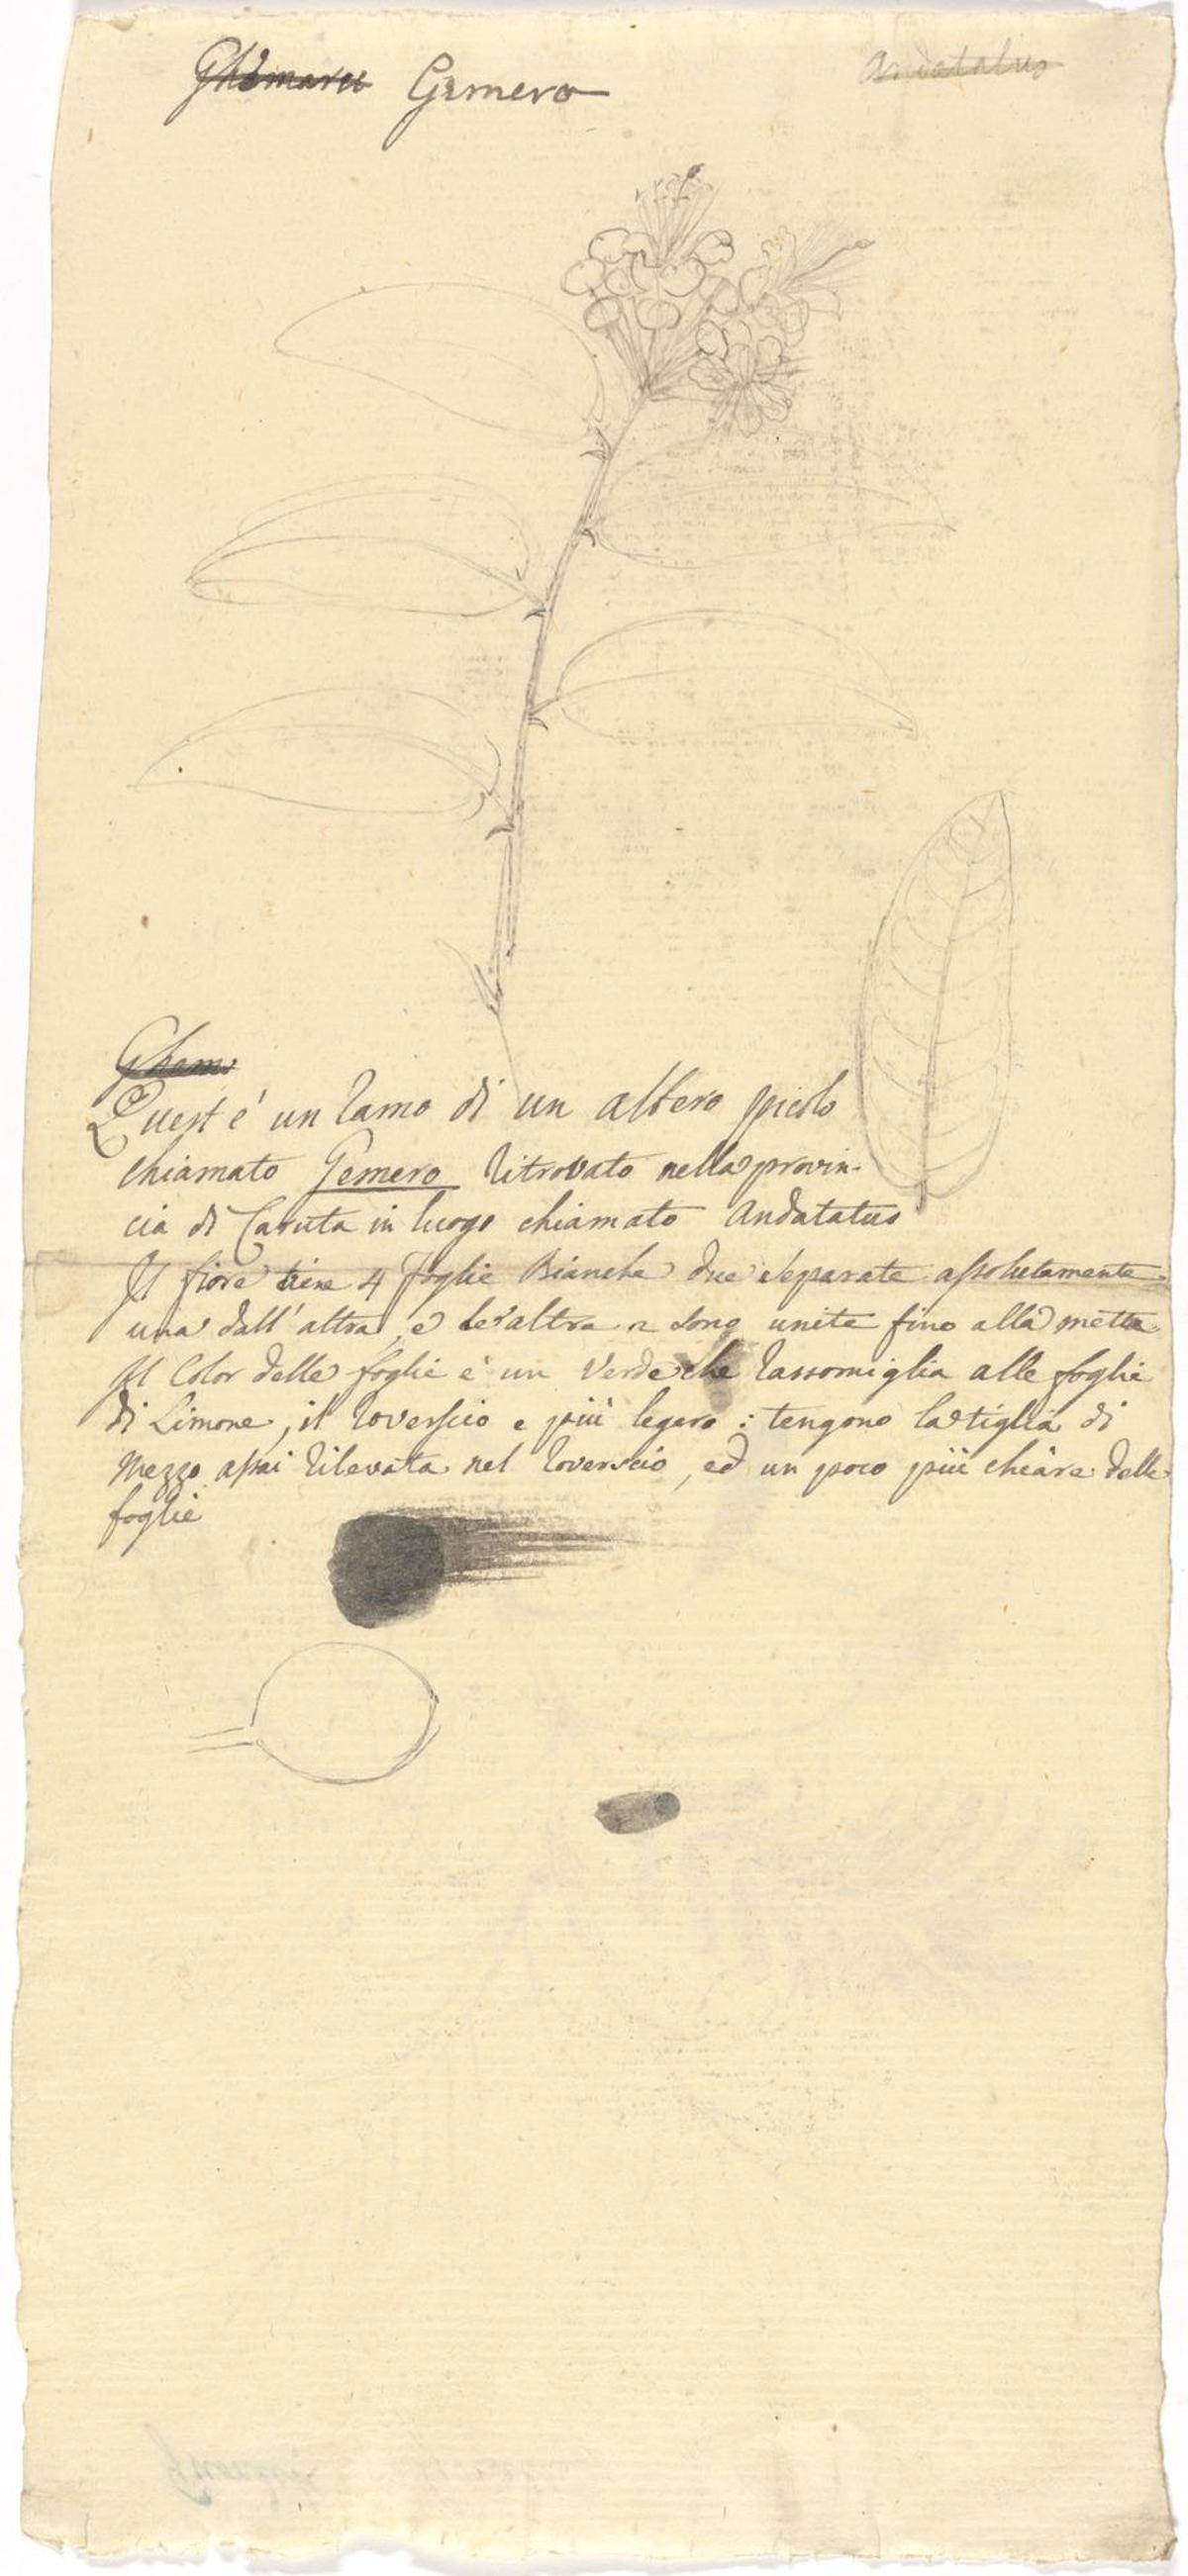 Ghemaru Gemero
Andatalus
Ghem:
Quest è un ramo di un albero picolo
chiamato Gemero ritrovato nella provin-
cia di Caruta in luogo chiamato Andatatus
Il fiore tiene 4 foglie Bianche due separate assolutamente
una dall' altra, e le altre 2 sono unite fino alla metta
Il Color delle foglie è un Verde che rassomiglia alle foglie
di Limone, il roverscio e più legero: tengono la stiglia di
Mezzo assai rilevata nel roverscio, ed un poco più chiara delle
foglie